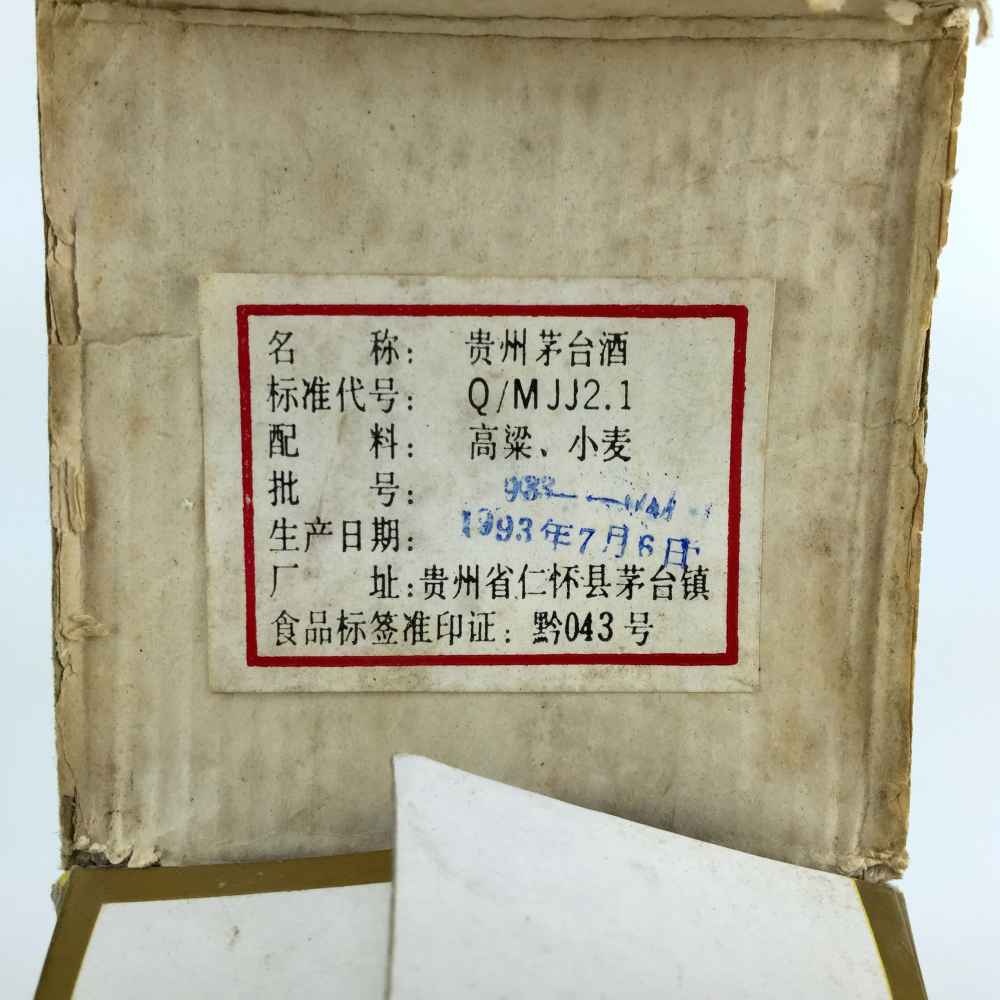 名 称: 贵州茅台酒
标准代号: Q/MJJ2.1
配 料: 高粱、小麦
批 号:
生产日期: 1993年7月6日
厂 址: 贵州省仁怀县茅台镇
食品标签准印证: 黔043号